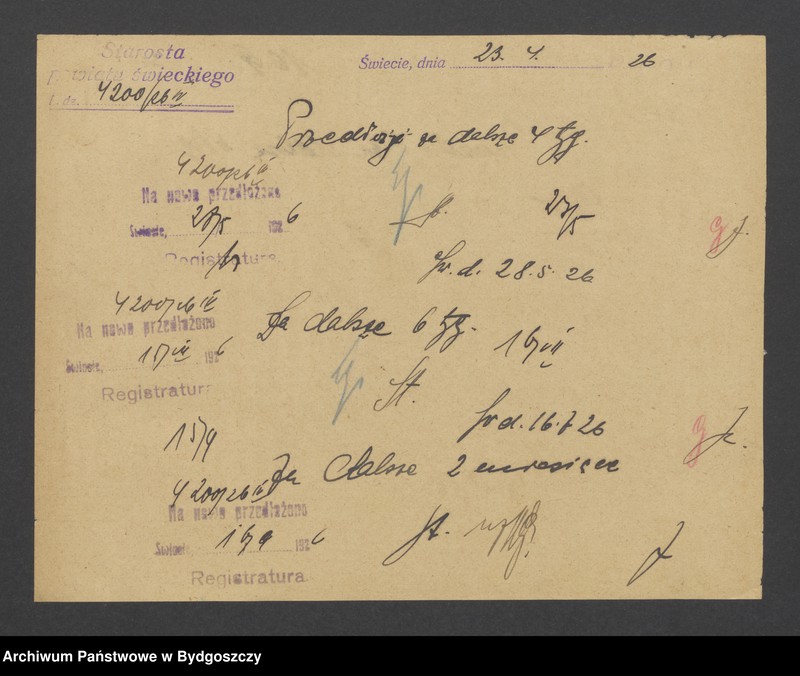 Starosta
Powiatu świeckiego
L. dz. 4200/26 IV
Świecie, dnia 23. 4. 26
za dalsze 4 tyg.
4200/26 IV
Na nowo przedłożono
Świecie, 28/5 1926
Registratura
St. 27/5
Św. d. 28. 5. 26
4200/26 IV
Na nowo przedłożono
Świecie, 15/VII 1926
Registratura
Za dalsze 6 tyg.
16/VII
St.
Św d. 16. 7 26
15/9
Za dalsze 2 miesiące
4200/26 IV
Na nowo przedłożono
Świecie, 1926
Registratura
St.
Archiwum Państwowe w Bydgoszczy